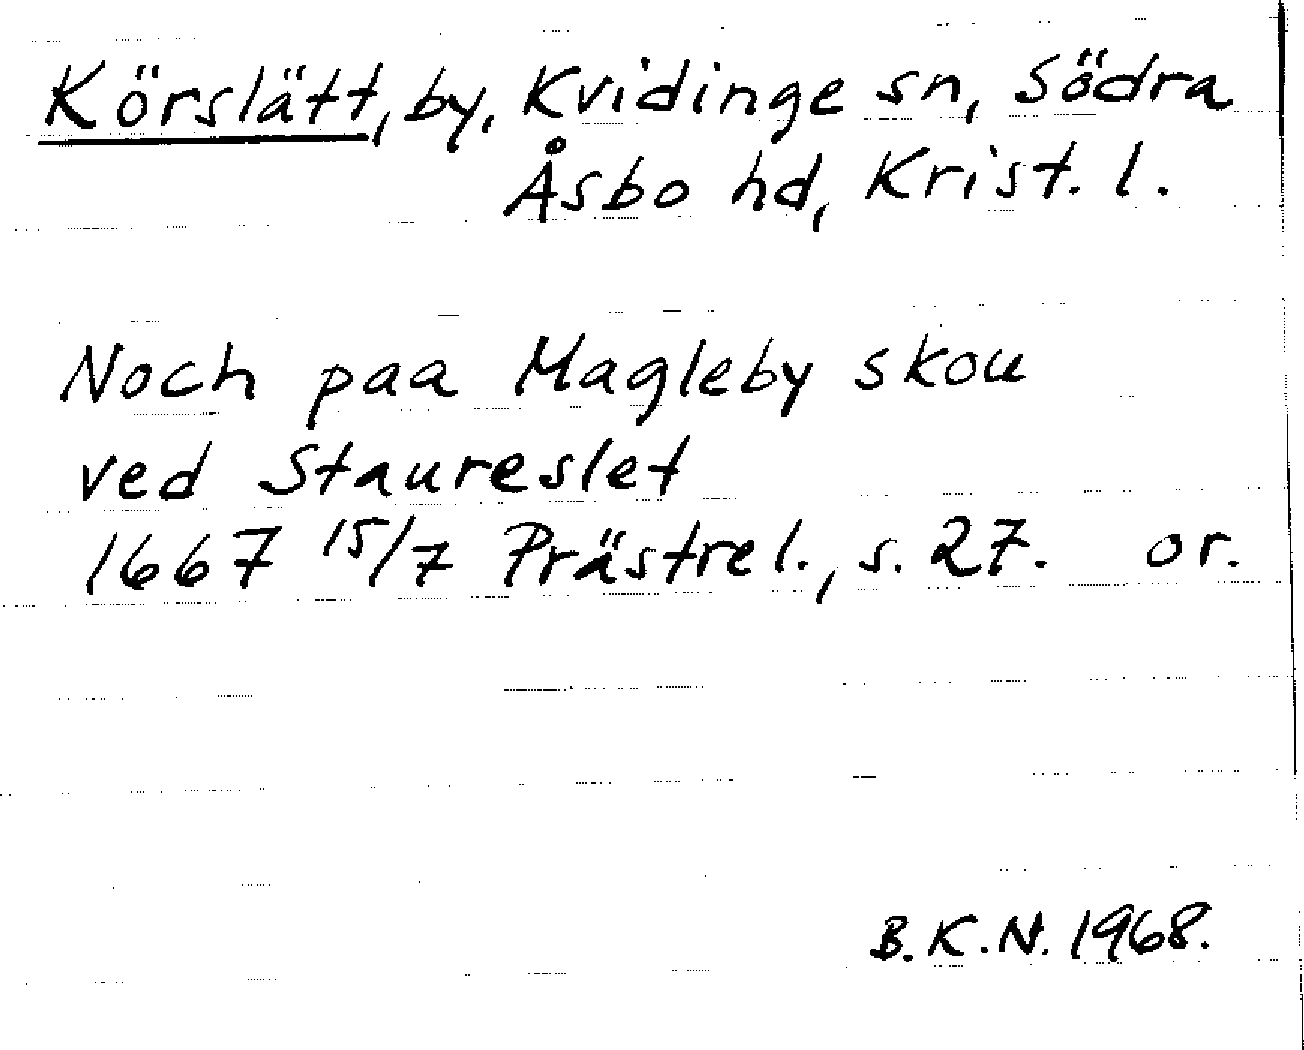 Körslätt, by, Kvidinge sn, Södra
Åsbo hd, Krist. l.
Noch paa Magleby skou
ved Staureslet
1667 15/7 Prästrel., s. 27. or.
B. K. N. 1968.